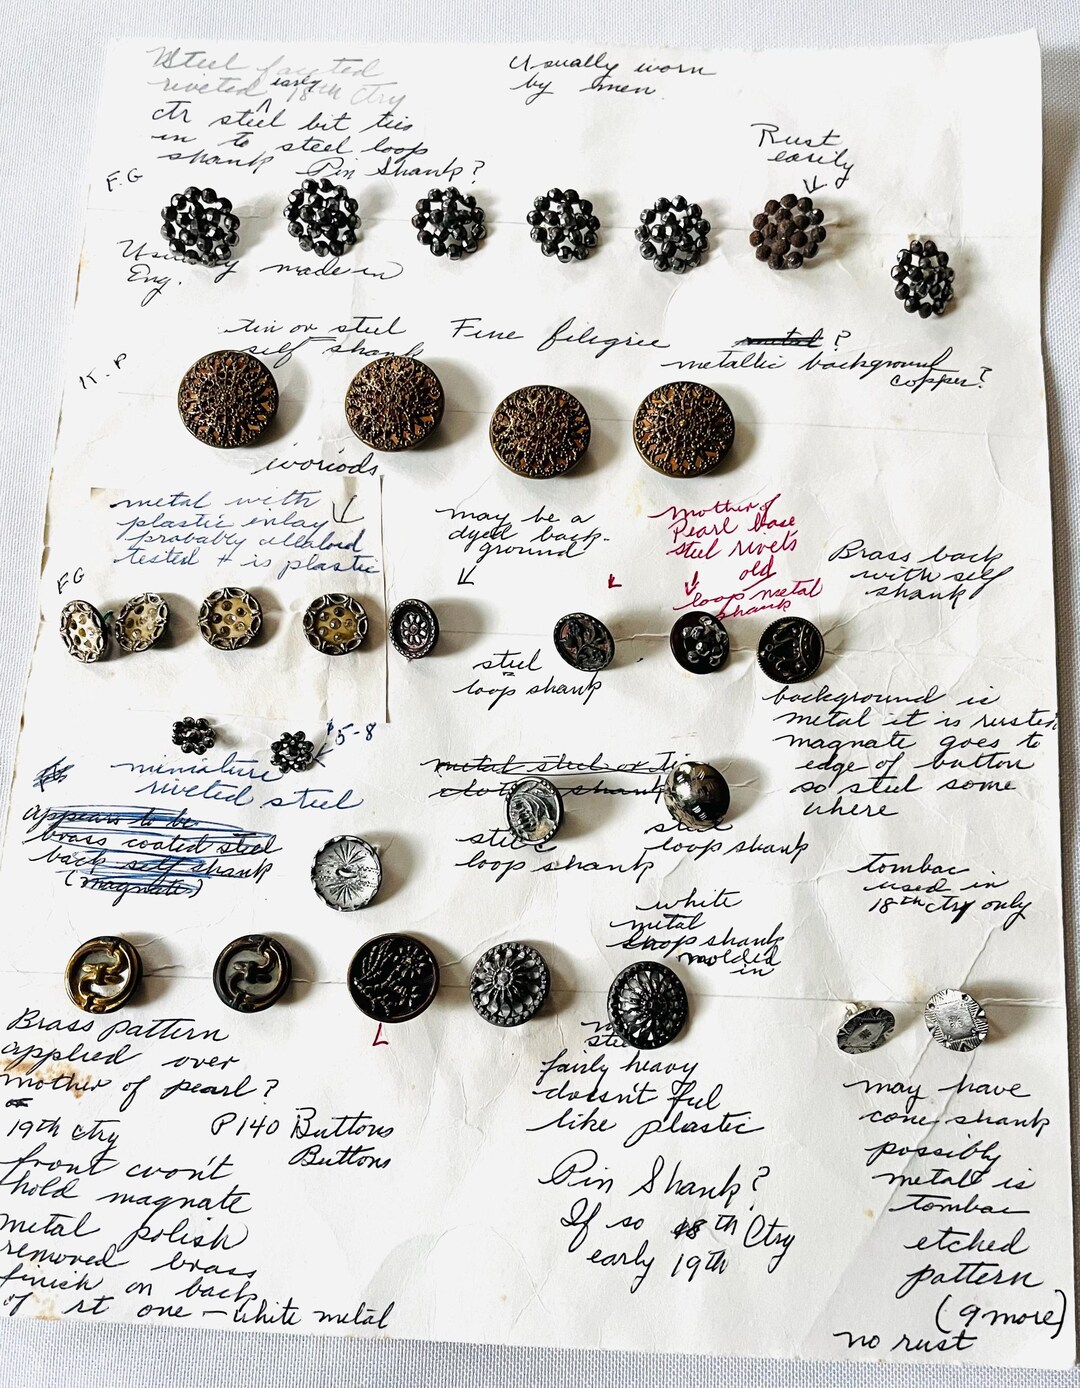 Steel faceted
riveted early 18th Ctry
ctr steel bit ties
in to steel loop
shank Pin Shank?
Usually worn
by men
Rust
easily
F.G
Usually made in
Eng.
tin or steel
self shank
Fine filigree
metal ?
metallic background
copper?
K.P
ivoriods
metal with
plastic enlay
probably celluloid
tested + is plastic
may be a
dyed back-
ground
mother of
Pearl base
steel rivets
old
loop metal
shank
L
Brass back
with self
shank
F.G
steel
loop shank
background is
metal it is rusted
magnate goes to
edge of button
so steel some
where
$5-8
miniature
riveted steel
metal steel or tin
cloth shank
appears to be
brass coated steel
back self shank
(magnate)
steel
loop shank
steel
loop shank
tombac
used in
18th ctry only
white
metal
loop shank
molded
in
L
Brass pattern
applied over
mother of pearl?
or
19th ctry
front won't
hold magnate
metal polish
removed brass
finish on back
of rt one - white metal
P140 Buttons
Buttons
steel
fairly heavy
doesn't ful
like plastic
Pin Shank?
If so 18th Ctry
early 19th
may have
cone shank
possibly
metal is
tombac
etched
pattern
(9 more)
no rust